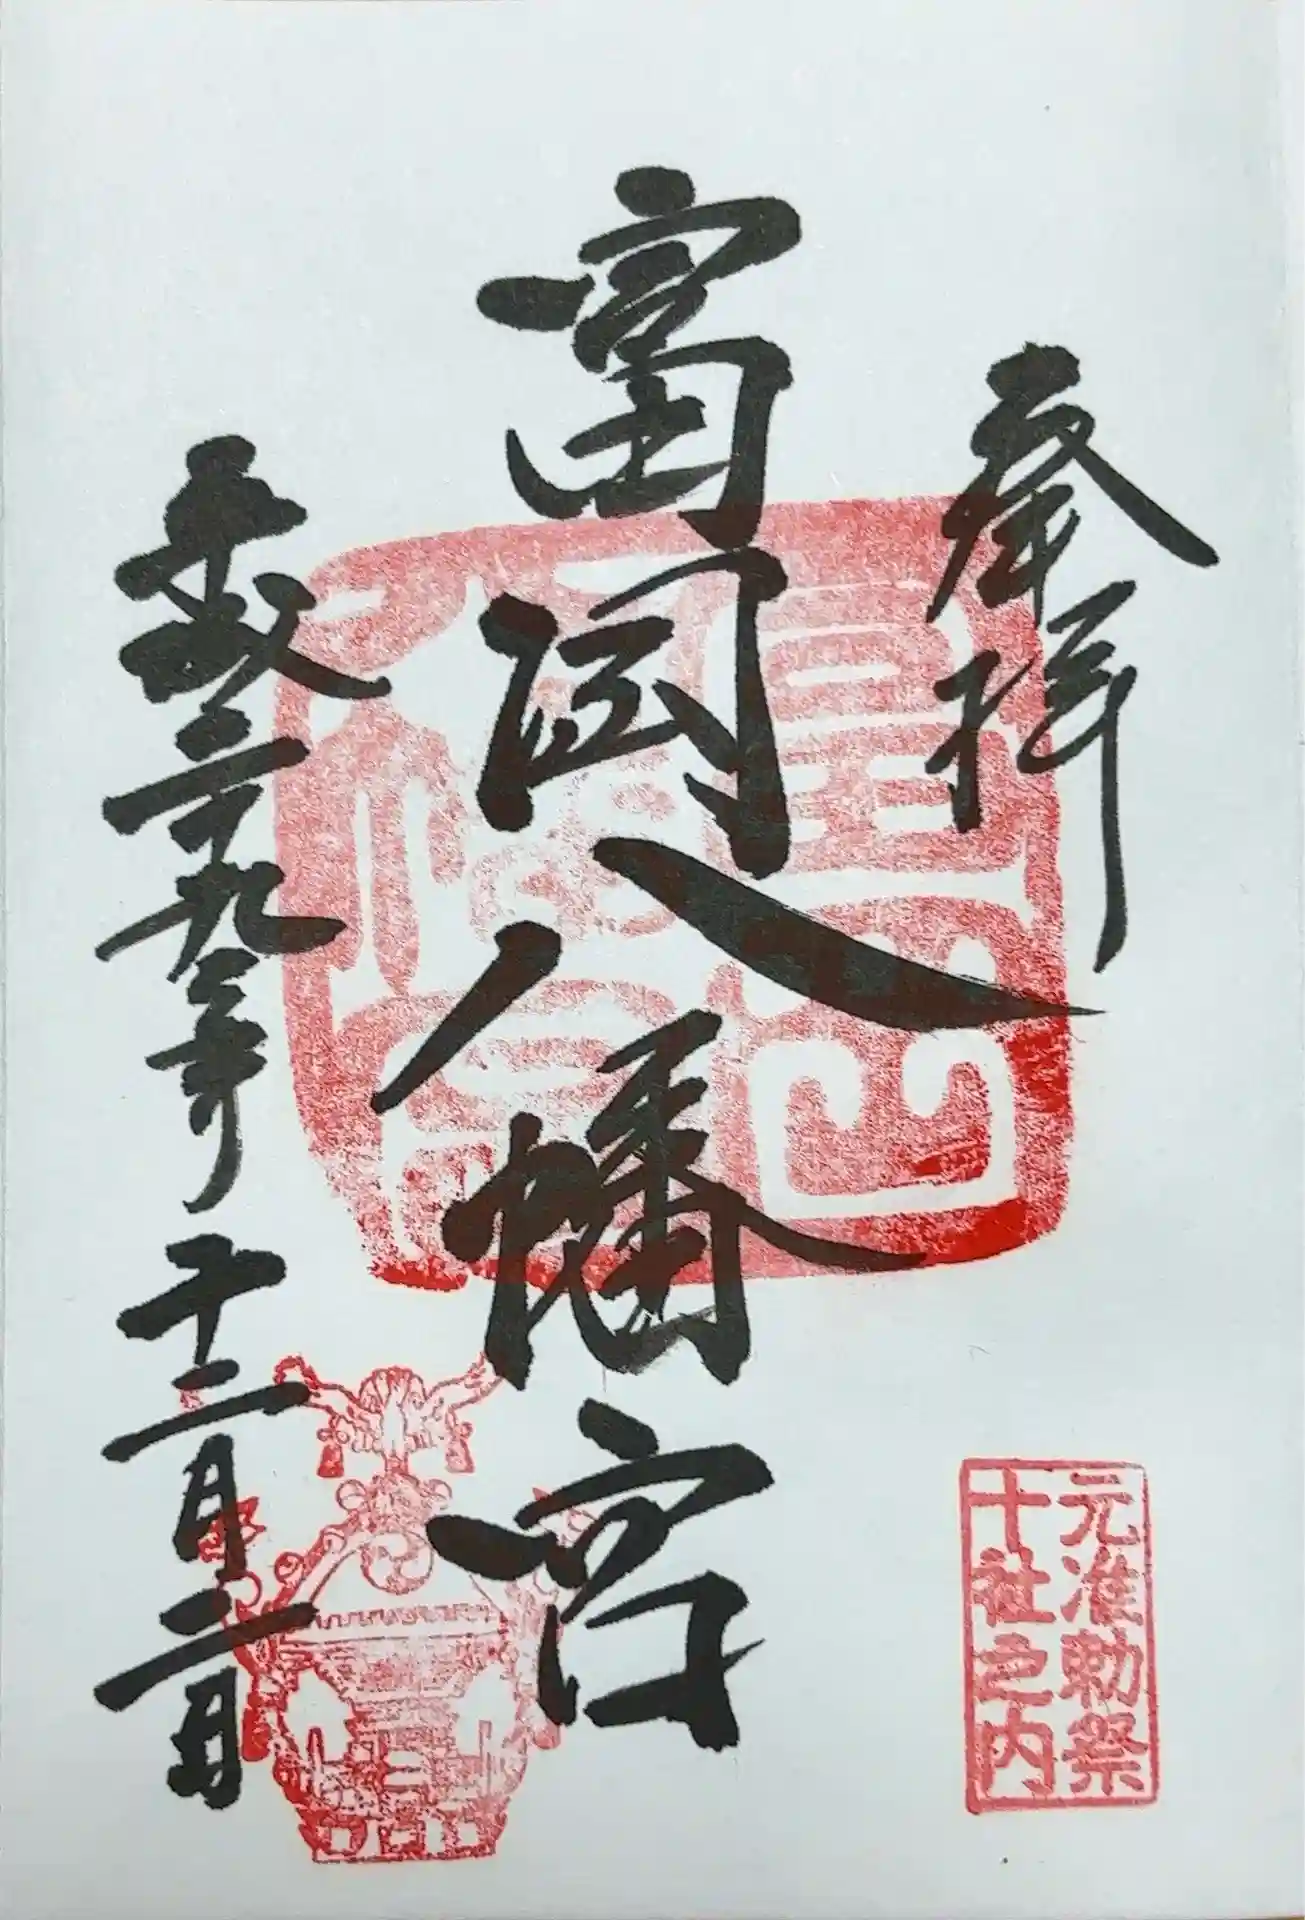 奉拝
富岡八幡宮
平成二十九年十二月二日
富岡
八幡宮
元准勅祭
十社之内